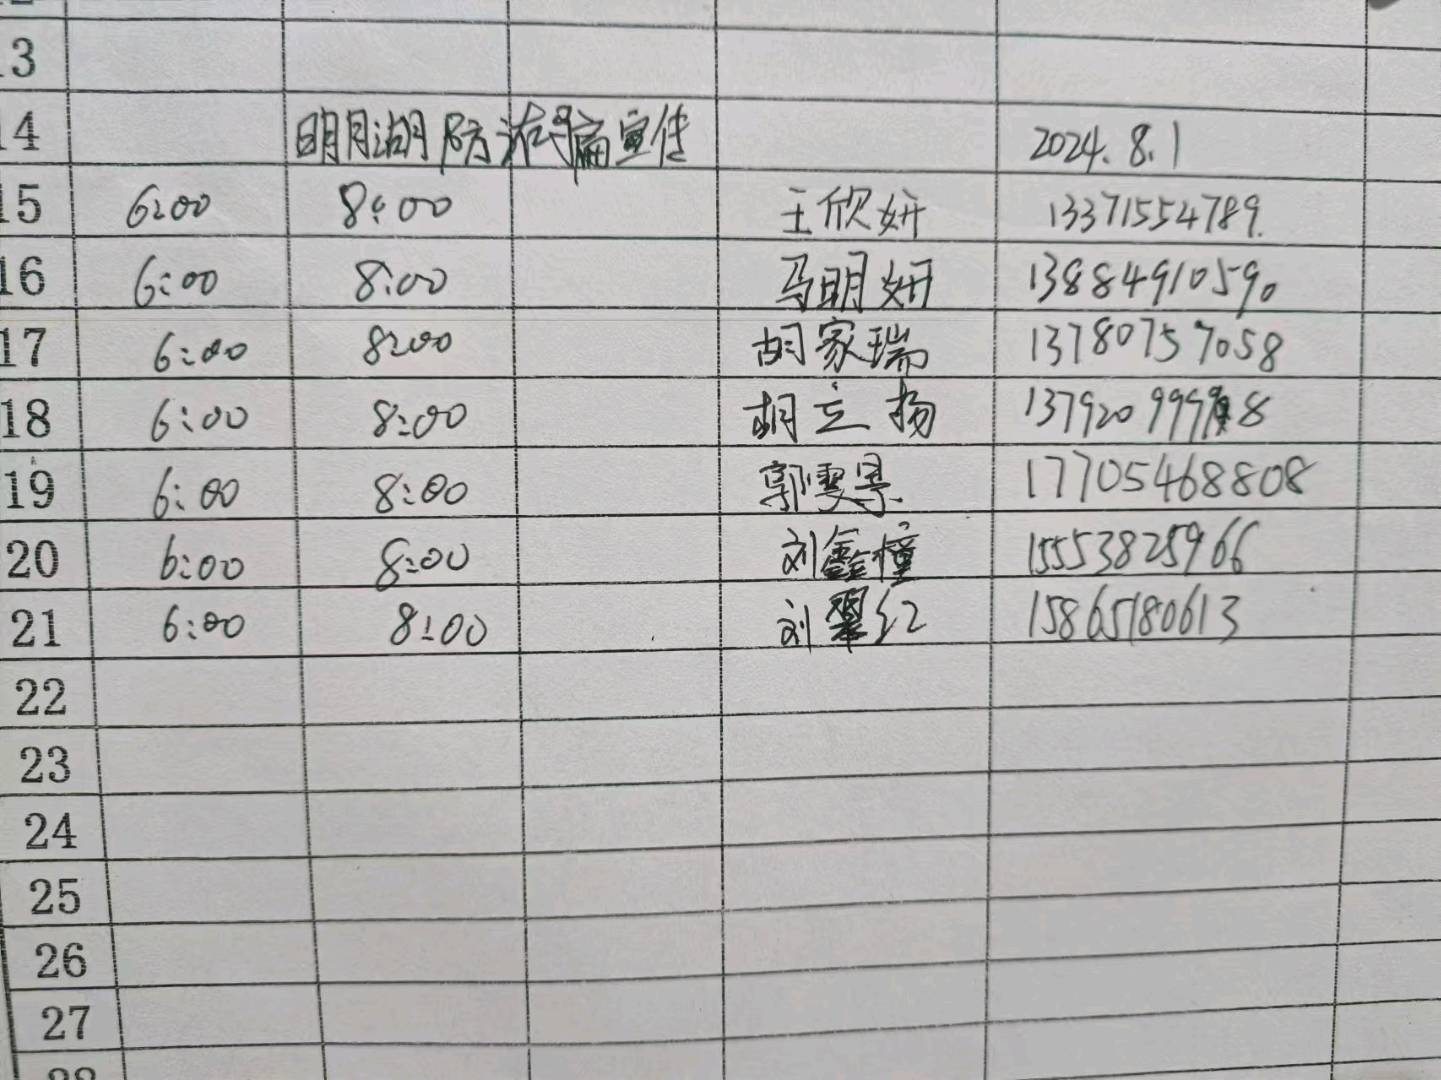 13
14 明月湖防诈骗宣传 2024.8.1
15 6:00 8:00 王欣妍 13371554789.
16 6:00 8:00 马明妍 13884910590
17 6:00 8:00 胡家瑞 13780757058
18 6:00 8:00 胡立扬
19 6:00 8:00 郭雯景 17705468808
20 6:00 8:00 刘鑫橦 15553825966
21 6:00 8:00 刘翠红 15865180613
22
23
24
25
26
27
28